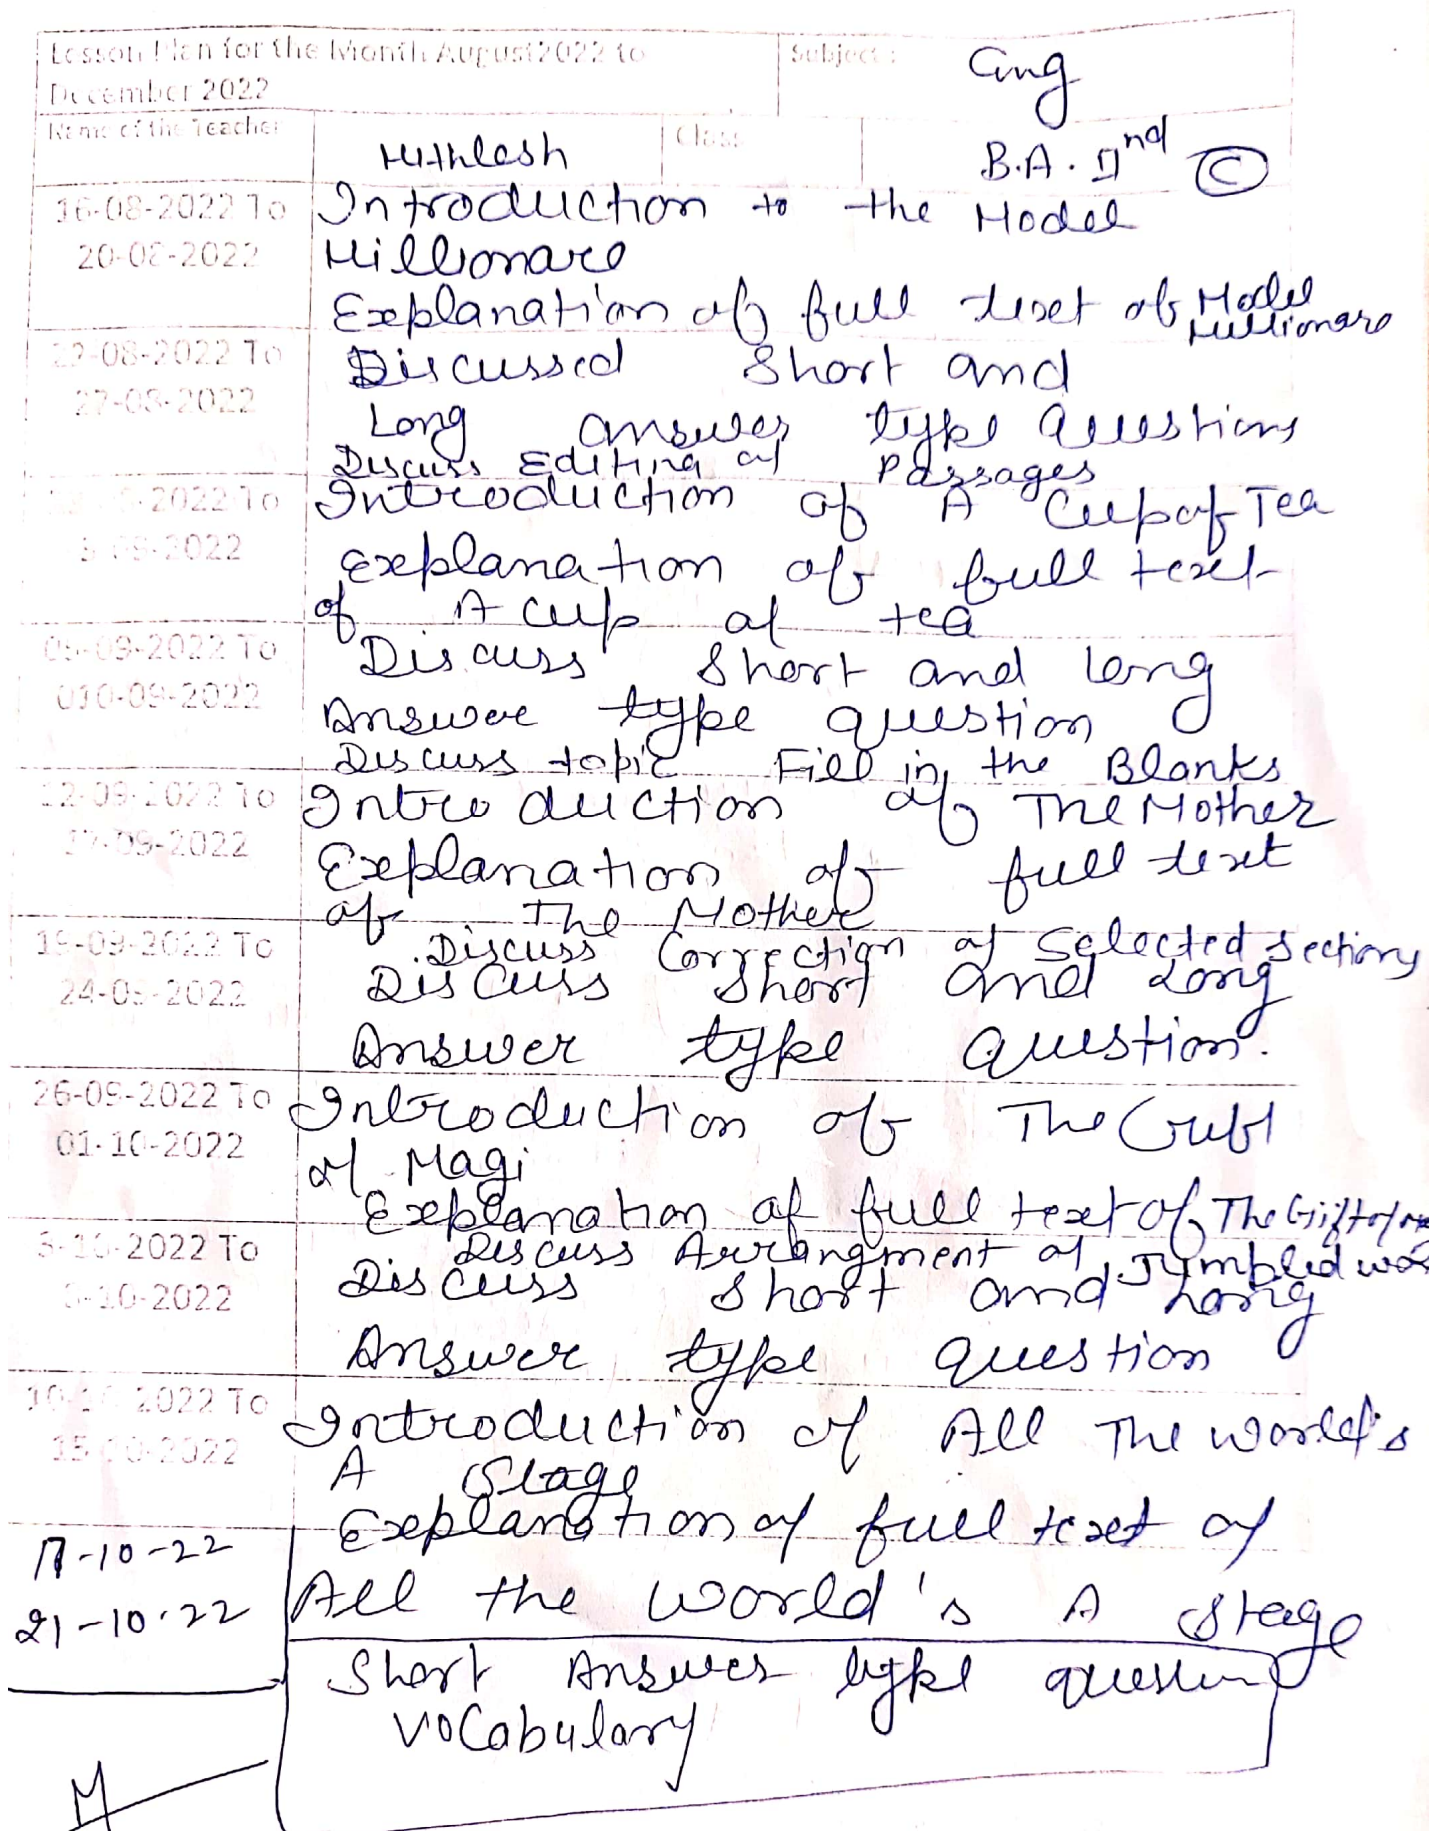 Lesson Plan for the Month August 2022 to
December 2022
Subject : Eng
Name of the Teacher Mithlesh Class B.A. IInd C
16-08-2022 To Introduction to the Model
20-08-2022 Millionare
Explanation of full text of Model Millionare
22-08-2022 To Discussed Short and
27-08-2022 Long answer type Questions
Discuss Editing of Passages
2022 To Introduction of A Cup of Tea
2022 Explanation of full text
of A cup of tea
05-09-2022 To Discuss Short and long
010-09-2022 Answer type question
Discuss topic Fill in the Blanks
12-09-2022 To Introduction of The Mother
17-09-2022 Explanation of full text
of The Mother
19-09-2022 To Discuss Correction of Selected Sections
24-09-2022 Discuss Short and Long
Answer type Question.
26-09-2022 To Introduction of The Gift
01-10-2022 of Magi
Explanation of full text of The Gift of
-10-2022 To Discuss Arrangment of Jumbled
-10-2022 Discuss Short and Long
Answer type question
10-10-2022 To Introduction of All The World's
15-10-2022 A Stage
Explanation of full text of
17-10-22 All the World's A Stage
21-10-22
Short Answer type question
Vocabulary